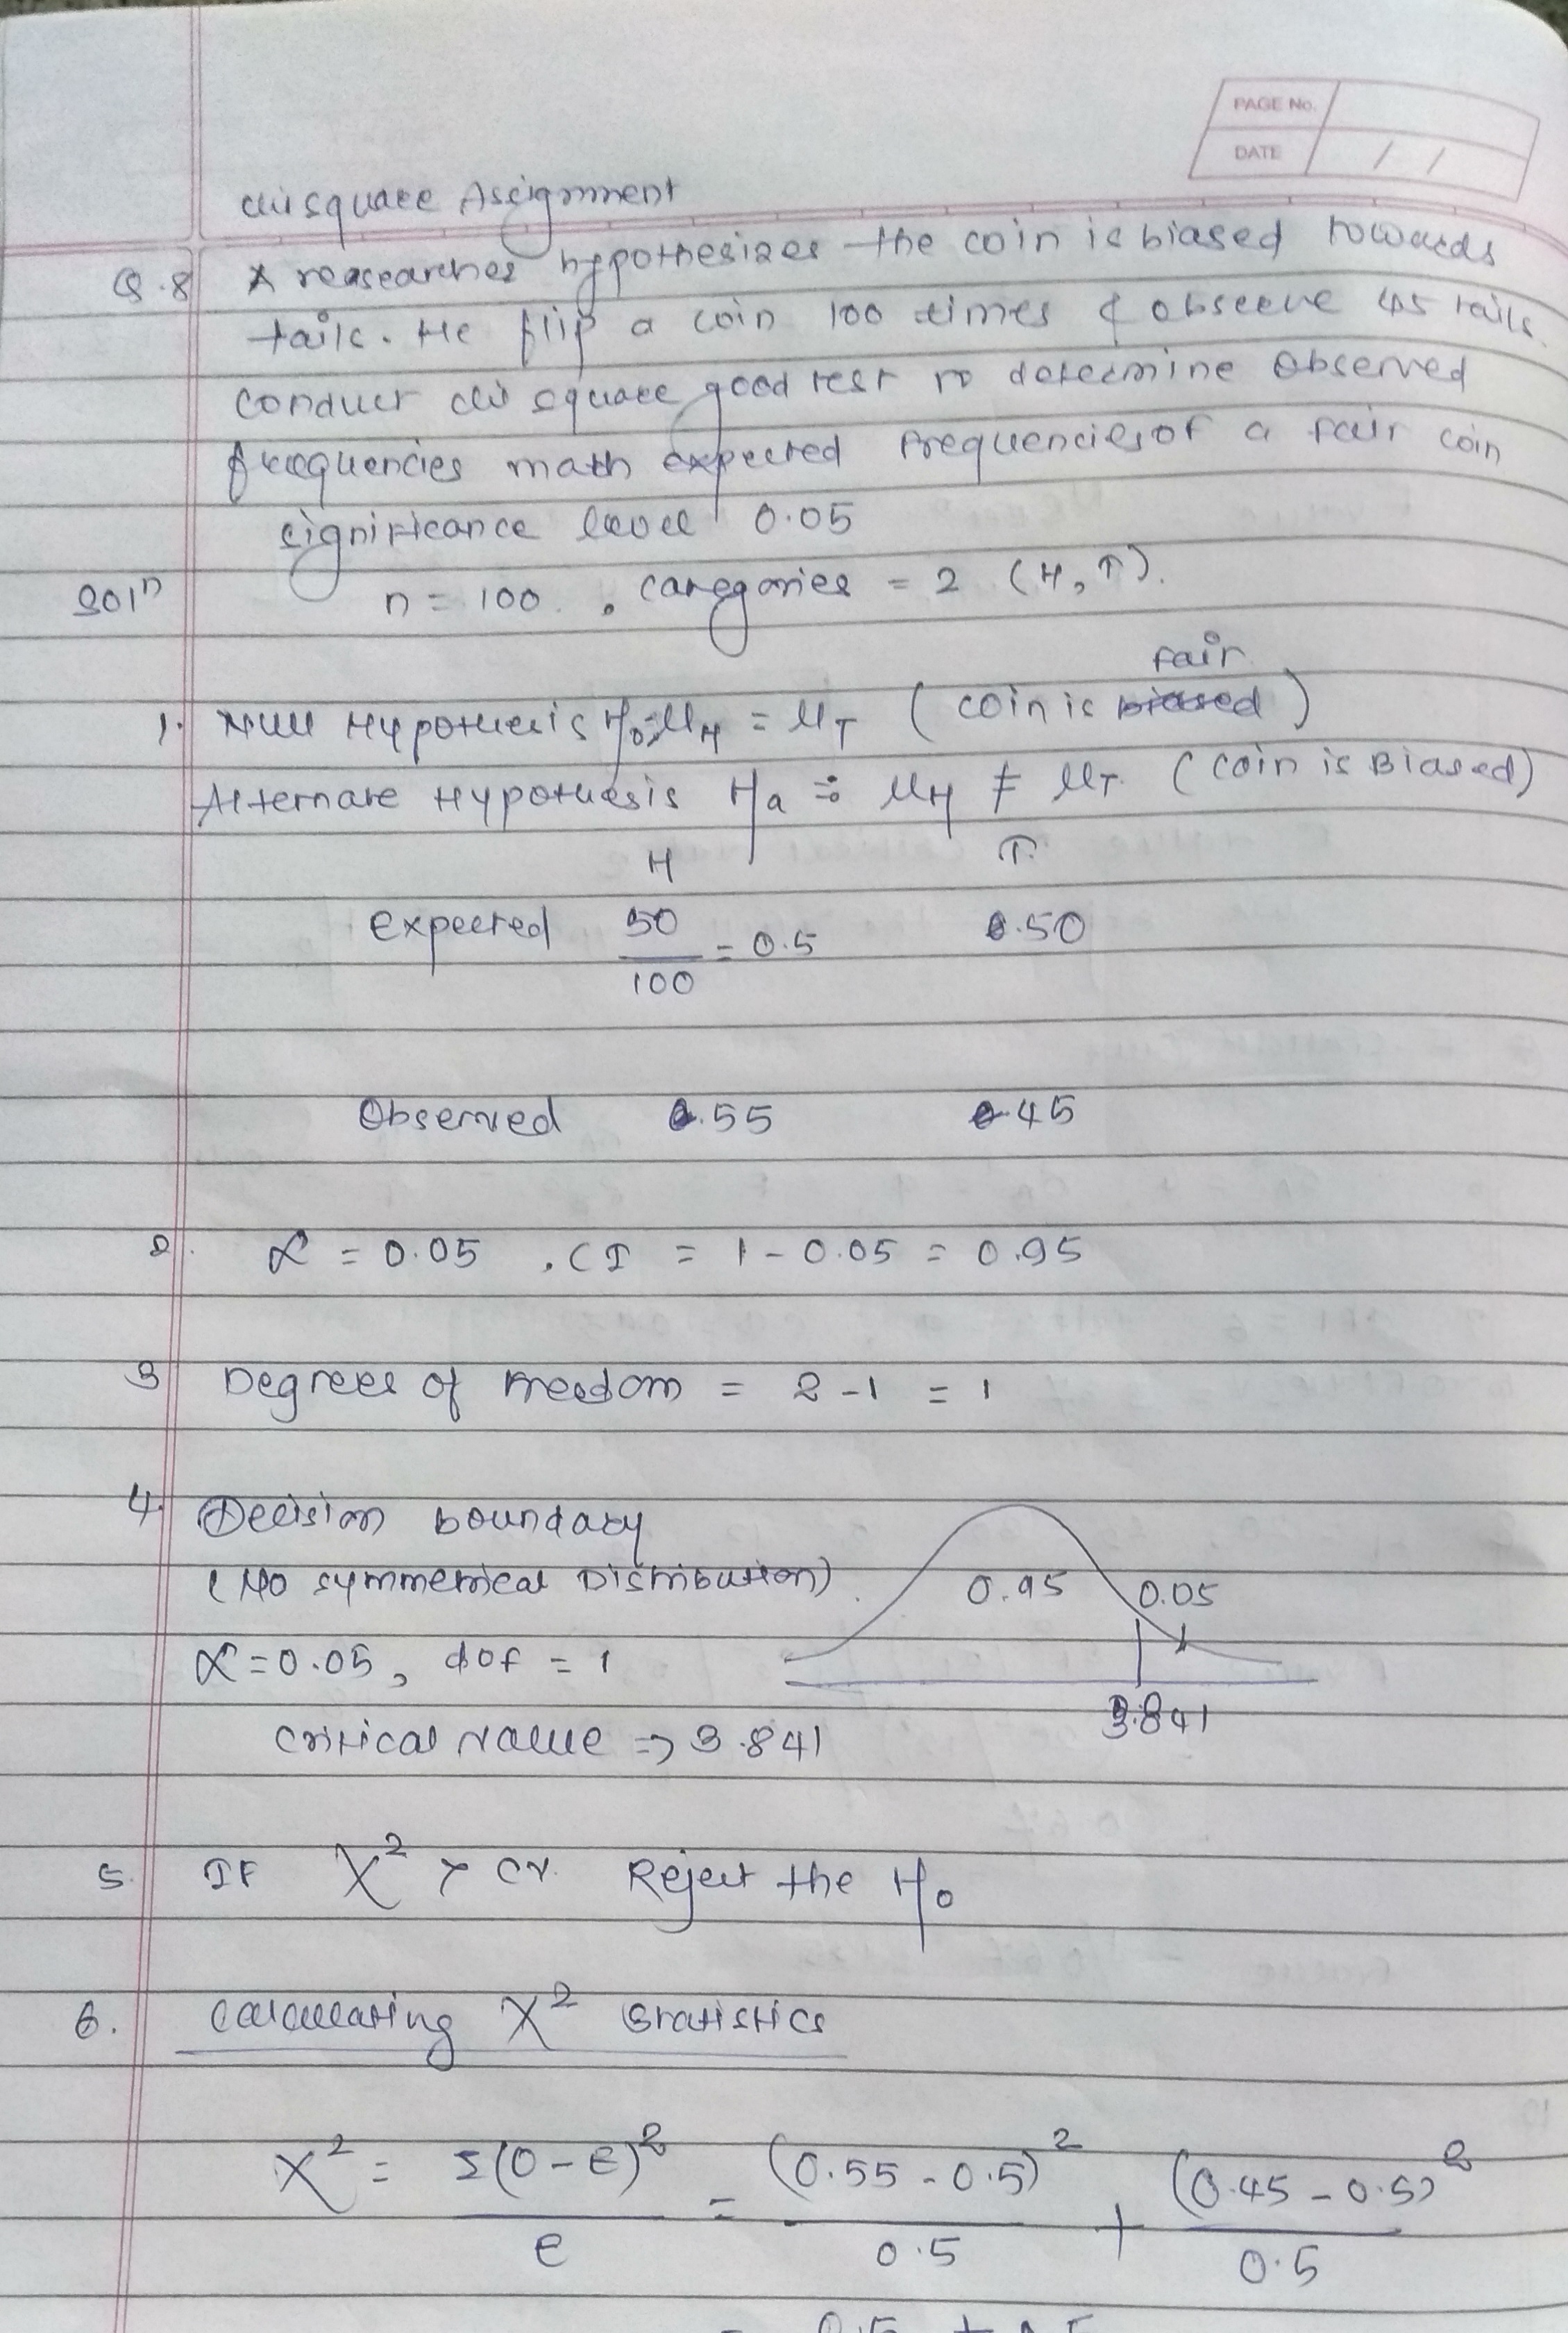 PAGE No.
DATE / /
chisquare Assignment
Q.8 A reasearcher hypothesizes the coin is biased towards
tails. He flip a coin 100 times & observe 45 tails.
conduct chi square good test to determine observed
frequencies math expected frequencies of a fair coin
significance level 0.05
Solⁿ n = 100. , categories = 2 (H, T).
fair
1. Null Hypothesis H₀ : μ_H = μ_T ( coin is biased )
Alternate Hypothesis Ha : μ_H ≠ μ_T. ( coin is Biased)
H T.
Expected 50/100 = 0.5 .50
Observed .55 .45
2. α = 0.05 . CI = 1 - 0.05 = 0.95
3 Degrees of freedom = 2 - 1 = 1
4. Decision boundary
(No symmetrical Distribution). 0.95 0.05
α = 0.05, dof = 1
3.841
critical value => 3.841
5. If χ² > CV. Reject the H₀
6. Calculating χ² Statistics
χ² = Σ(O - E)²/E = (0.55 - 0.5)²/0.5 + (0.45 - 0.5)²/0.5